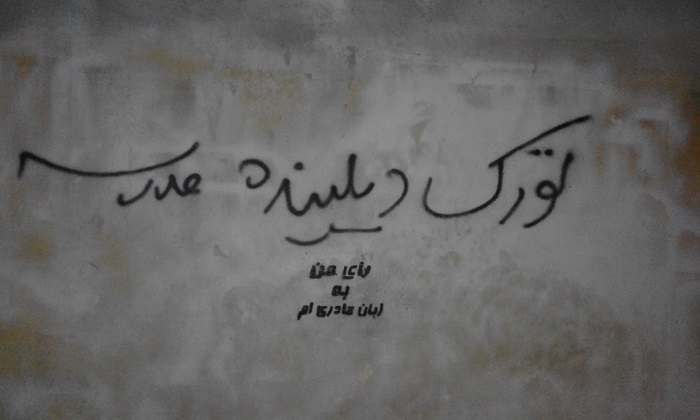 تورک دیلینده مدرسه
رأی من
به
زبان مادری ام